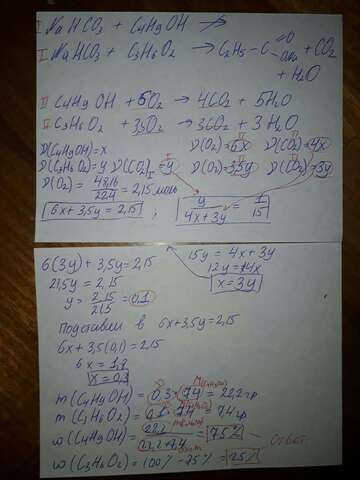 I NaHCO₃ + C₄H₉OH ↛
I NaHCO₃ + C₃H₆O₂ → C₂H₅-C=O-ONa + CO₂
+ H₂O
II C₄H₉OH + 6O₂ → 4CO₂ + 5H₂O
II C₃H₆O₂ + 3,5O₂ → 3CO₂ + 3H₂O
ν(C₄H₉OH)=x ν(O₂)=6x ν(CO₂)=4x
ν(C₃H₆O₂)=y ν(CO₂)I=y ν(O₂)=3,5y ν(CO₂)=3y
ν(O₂) = 48,16/22,4 = 2,15 моль
6x + 3,5y = 2,15 ; y/(4x+3y) = 1/15
15y = 4x + 3y
6(3y) + 3,5y = 2,15 12y = 4x
21,5y = 2,15 x = 3y
y = 2,15/21,5 = 0,1
Подставим в 6x+3,5y=2,15
6x + 3,5(0,1) = 2,15
6x = 1,8
x = 0,3
m(C₄H₉OH) = 0,3 · 74 = 22,2 гр
m(C₃H₆O₂) = 0,1 · 74 = 7,4 гр
ω(C₄H₉OH) = 22,2/(22,2+7,4) = 75% ответ
ω(C₃H₆O₂) = 100% - 75% = 25%